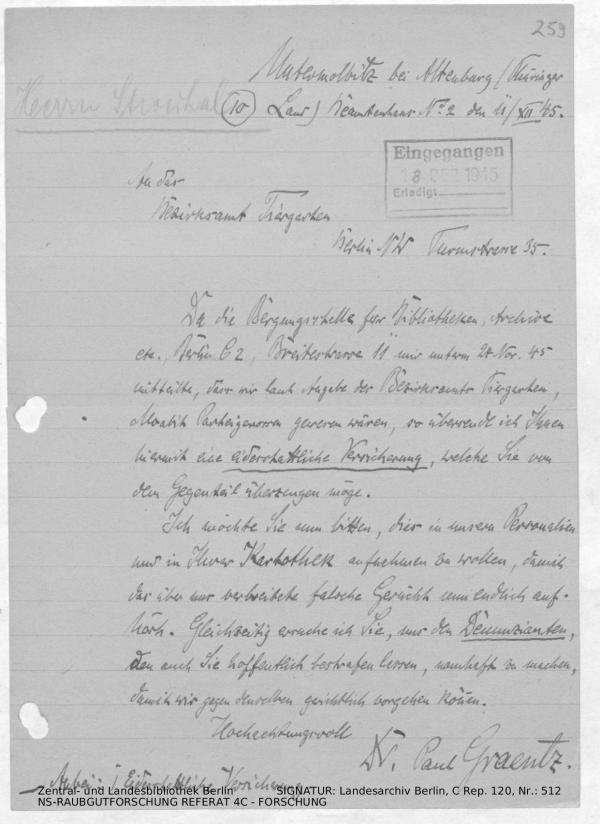 259
Untermolbitz bei Altenburg (Thüringer
Herrn Strouhal (10) Land) Beamtenhaus No. 2 den 11/XII 45.
Eingegangen
18. DEZ. 1945
Erledigt
An das
Bezirksamt Tiergarten
Berlin NW Turmstrasse 35.
Da die Bergungsstelle für Bibliotheken, Archive
etc., Berlin C 2, Breitestrasse 11 mir unterm 28 Nov. 45
mitteilte, dass wir laut Angabe des Bezirksamts Tiergarten,
Moabit Parteigenossen gewesen wären, so übersende ich Ihnen
hiermit eine eidesstattliche Versicherung, welche Sie von
dem Gegenteil überzeugen möge.
Ich möchte Sie nun bitten, dies in unsern Personalien
und in Ihrer Kartothek aufnehmen zu wollen, damit
das über uns verbreitete falsche Gerücht nun endlich auf-
hört. Gleichzeitig ersuche ich Sie, uns den Denunzianten,
den auch Sie hoffentlich bestrafen lassen, namhaft zu machen,
damit wir gegen denselben gerichtlich vorgehen können.
Hochachtungsvoll
Dr. Paul Graentz.
Anbei: 1 Eidesstattliche Versicherung
Zentral- und Landesbibliothek Berlin SIGNATUR: Landesarchiv Berlin, C Rep. 120, Nr.: 512
NS-RAUBGUTFORSCHUNG REFERAT 4C - FORSCHUNG